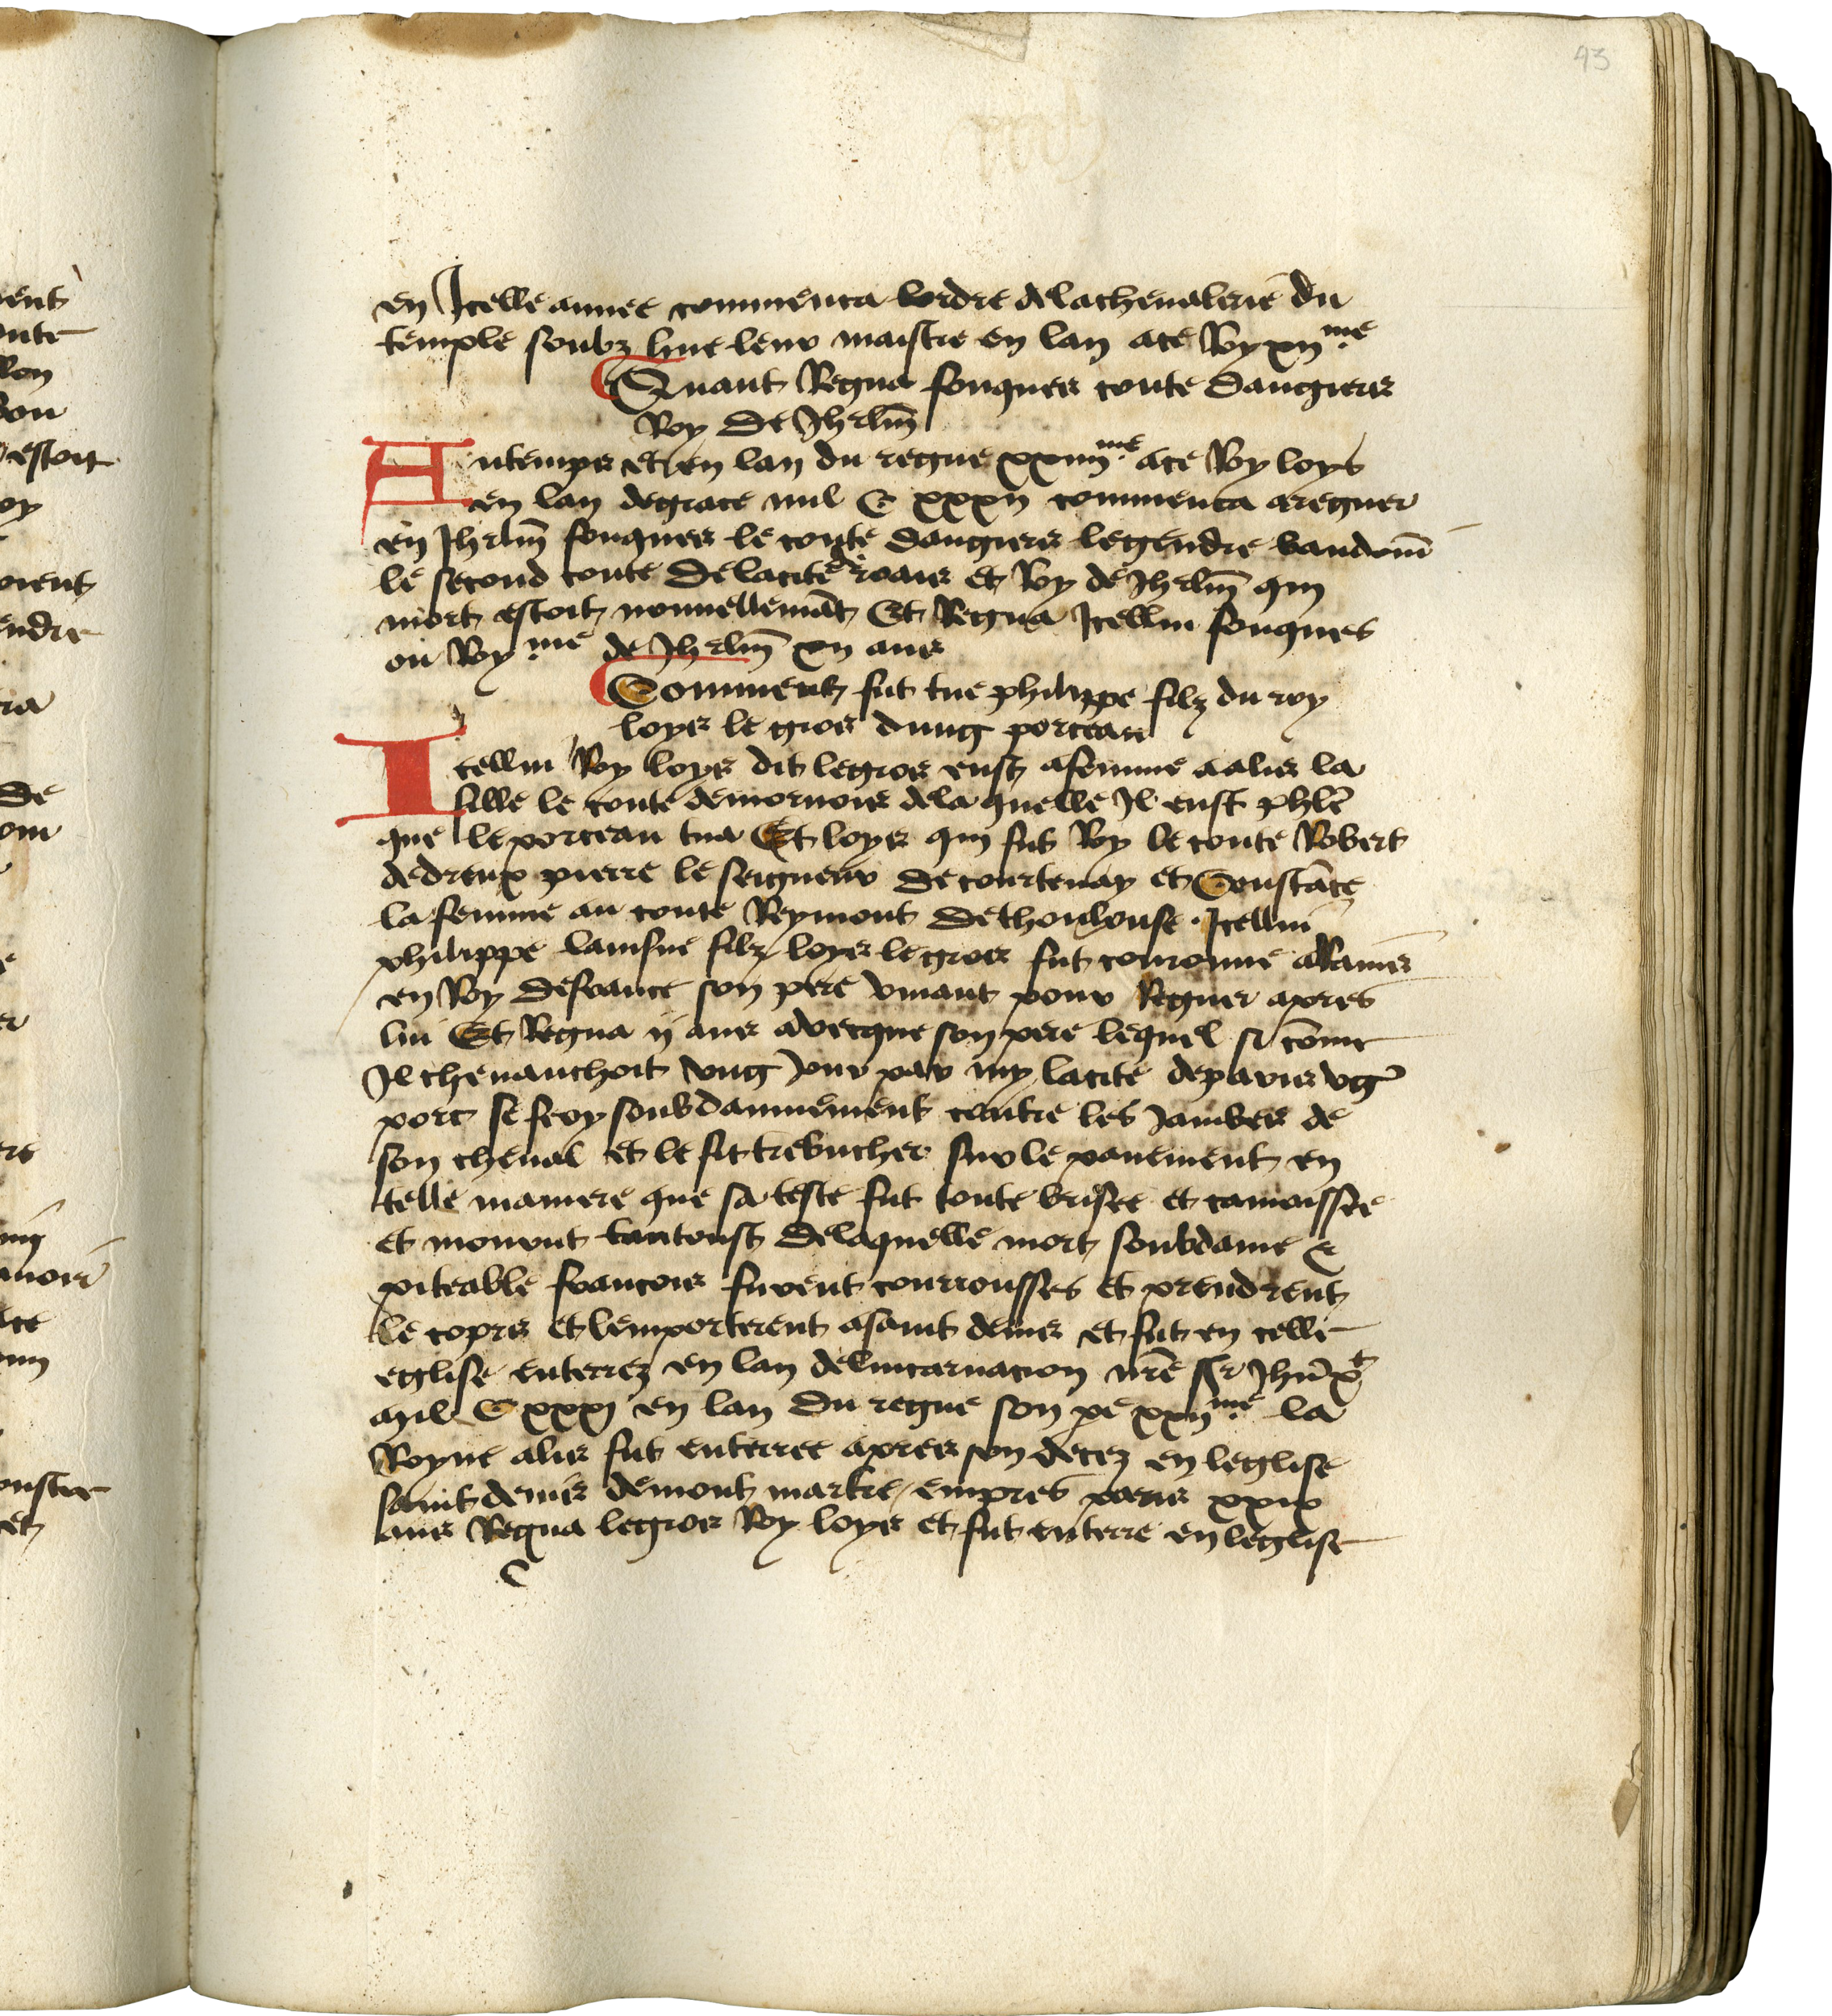 93
en Icelle annee commenca lordre dela chevalerie du
temple soubz hue leur maistre en lan ace Roy xiime
Quant Regna fouques conte dangiers
Roy de Jhrlm
Autemps et en lan du regne xxiiiime ace Roy loys
en lan degrace mil C xxxii commenca aregner
en Jhrlm fouques le conte dangiers legendre baudoin
le second conte delacite de roais et Roy de Jhrlm qui
mort estoit nouuellemat Et Regna Icellui fouques
ou Royme de Jhrlm xii ans
Comment fut tue philippe filz du roy
loys le gros dung porceau
Icellui Roy loys dit legros eust afemme aalis la
fille le conte demornois dela quelle Il eust phle
que le porceau tua Et loys qui fut Roy le conte Robert
dedreux pierre le seigneur de courtenay et Constace
la femme au conte Reymont de thoulouse . Icellui
philippe lainsne filz loys legros fut couronne a Rains
en Roy defrance son pere viuant pour Regner apres
lui Et Regna ii ans avecque son pere lequel si come
Il cheuauchoit vng Jour par my lacite deparis vg
porc se froy soubdainnement contre les Jambes de
son cheual et le fit trebucher sur le pauement en
telle maniere que sa teste fut toute brisee et camoissee
et mourut tantoust delaquelle mort soubdaine &
piteable francois furent courrousses et prendrent
le cops et lemporterent asaint denis et fut en celle
eglise enterrez en lan delincarnacion nre sr Jhu xt
mil C xxxi en lan du regne son pe xxiime la
Royne alis fut enterree apres son decez en leglise
saint denis demont martre empres paris xxix
ans Regna legros Roy loys et fut enterre en leglise